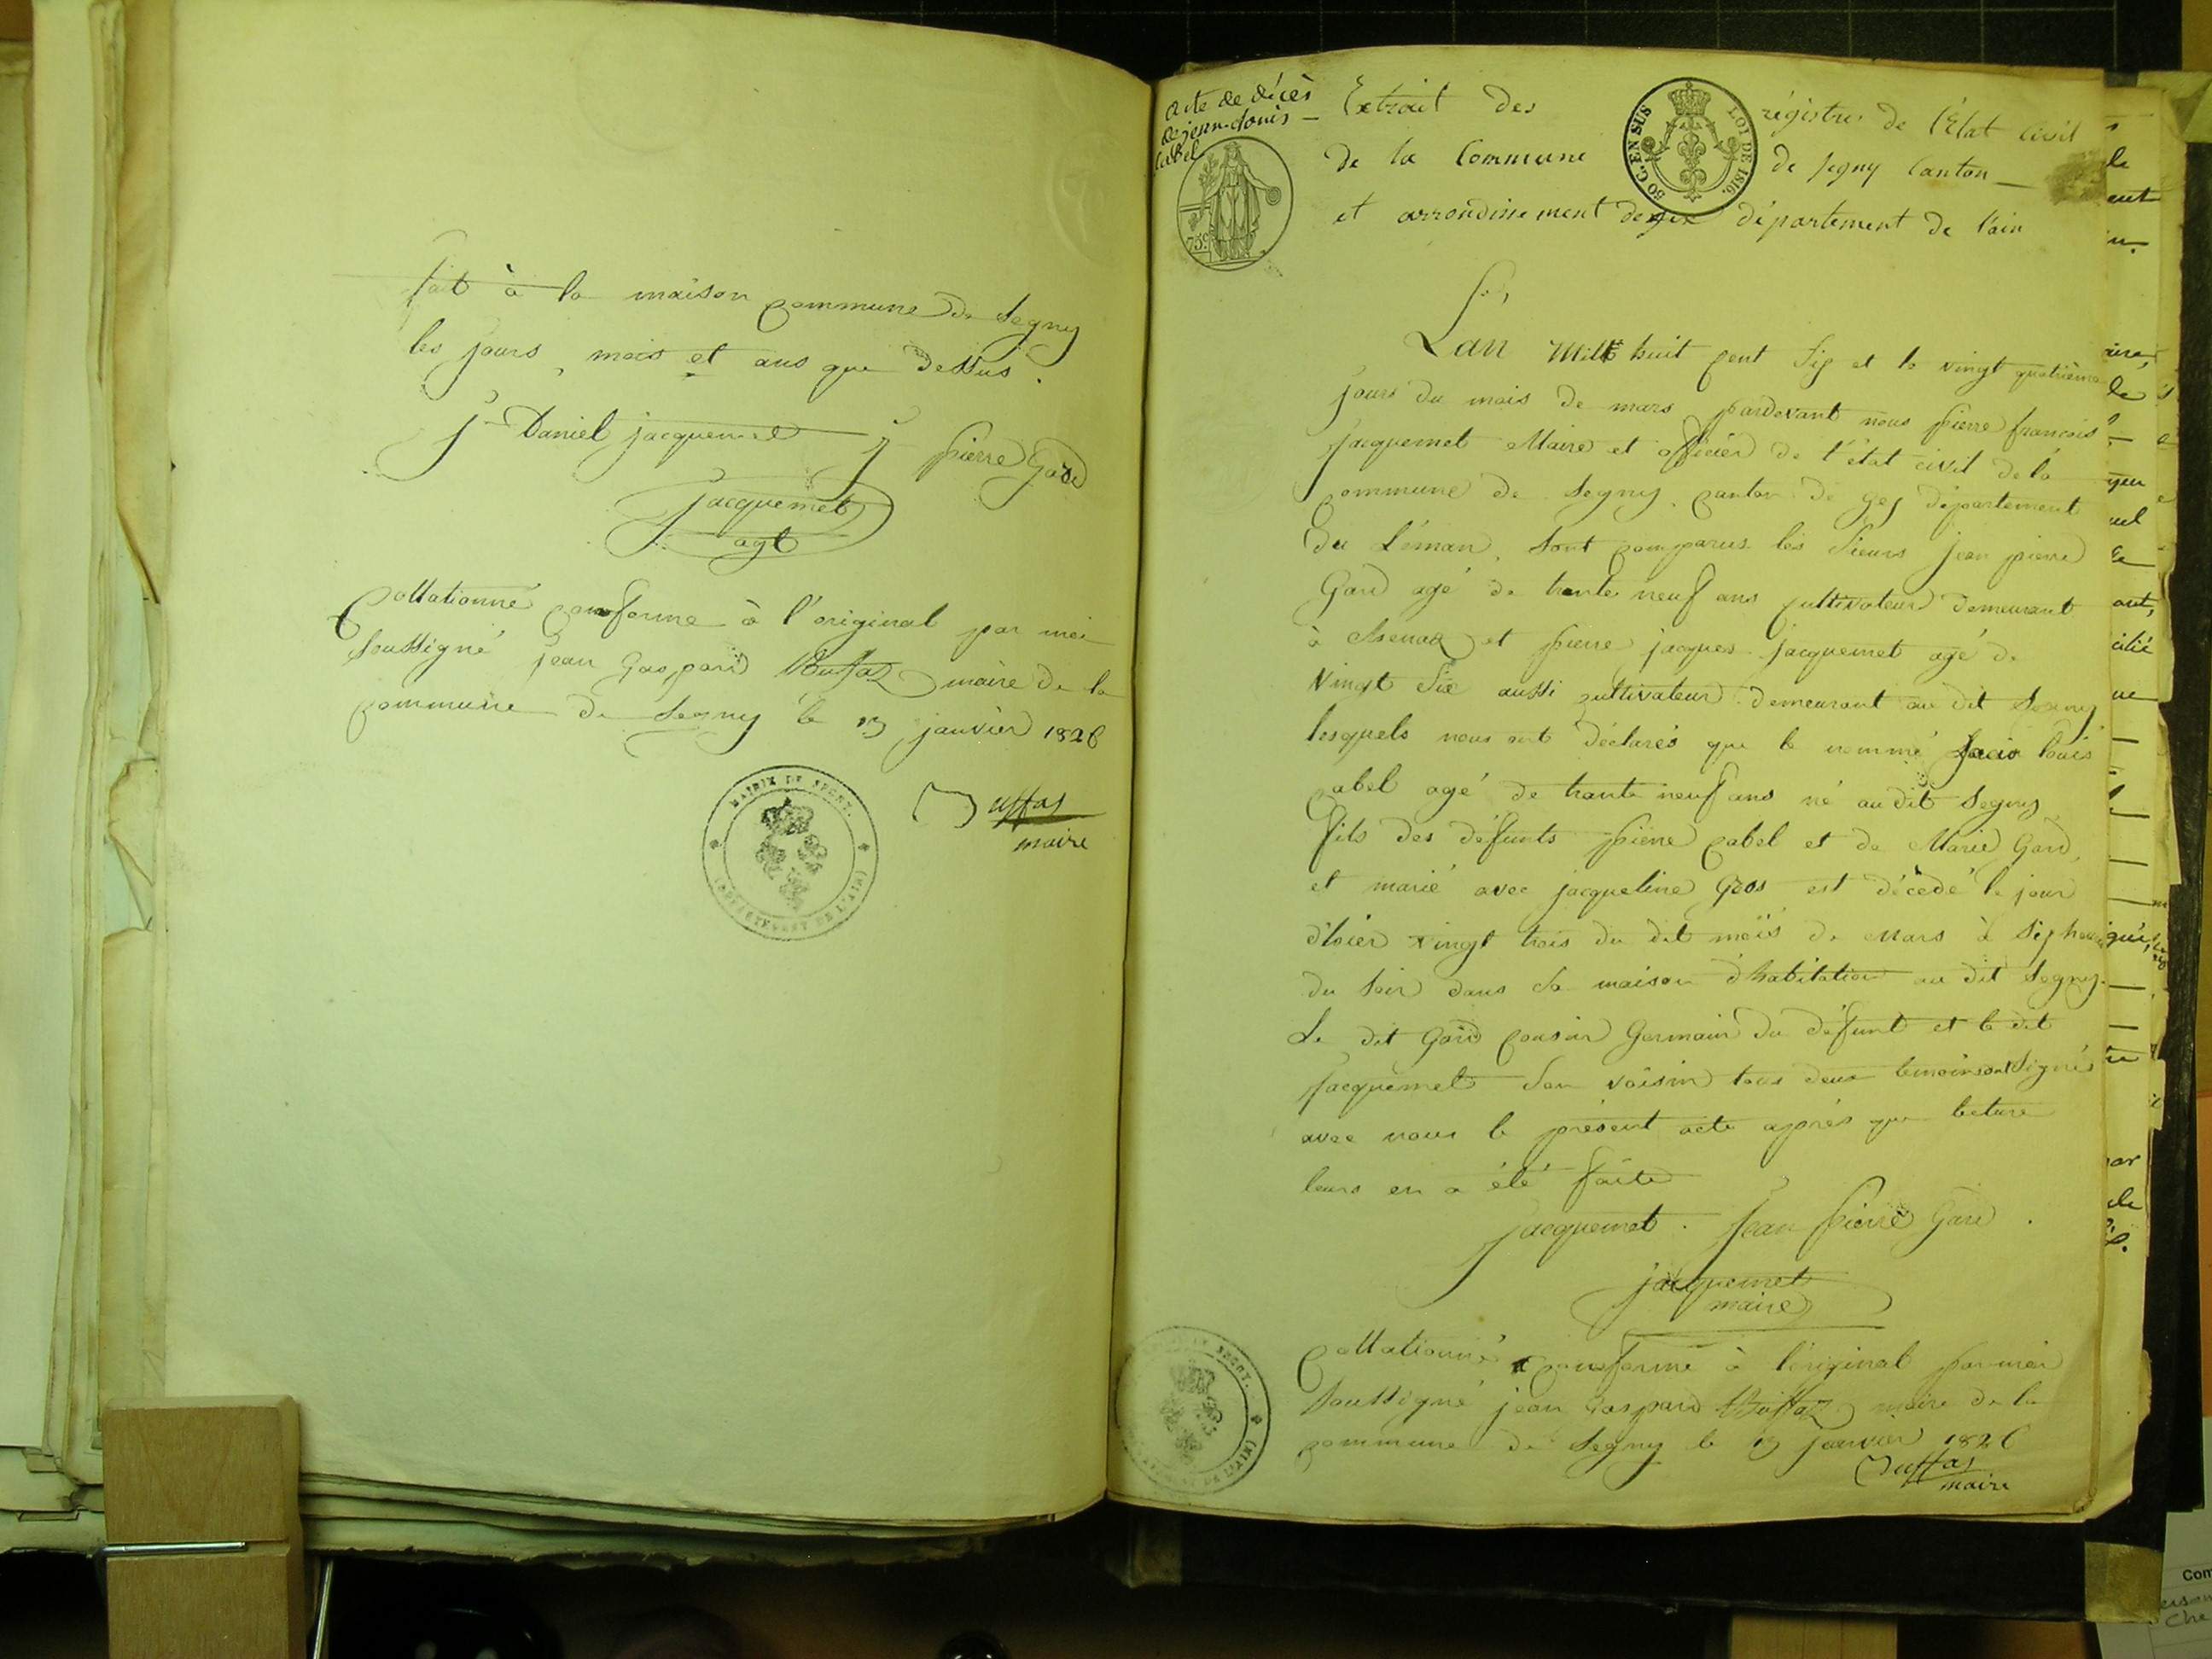 fait à la maison commune de Segny
les jours, mois et ans que dessus.
j Daniel jacquemet j pierre Gard
jacquemet
agt
Collationné conforme à l'original par moi
soussigné jean Gaspard Buffaz maire de la
commune de Segny le 13 janvier 1826
Buffaz
maire
MAIRIE DE SEGNY.
(DÉPARTEMENT DE L'AIN)
acte de décès
de jean-Louis
Cabel
75 c
30 C. EN SUS
LOI DE 1816.
Extrait des régistres de l'État Civil
de la Commune de Segny Canton
et arrondissement de gex département de l'ain
L'an Mille huit cent six et le vingt quatrième
jours du mois de mars pardevant nous pierre françois
jacquemet Maire et officier de l'état civil de la
commune de Segny canton de gex département
du Léman, sont comparus les sieurs jean pierre
Gard agé de trente neuf ans cultivateur demeurant
à et pierre jacques jacquemet agé de
vingt six aussi cultivateur demeurant au dit Segny
lesquels nous ont déclarés que le nommé Louis
Cabel agé de trante neuf ans né au dit Segny
fils des défunts pierre Cabel et de Marie Gard,
et marié avec jacqueline Gros est décédé le jour
d'hier vingt trois du dit mois de Mars à six heures
du soir dans sa maison d'habitation au dit Segny.
Le dit Gard cousin Germain du défunt et le dit
jacquemet son voisin tous deux temoins ont signés
avec nous le présent acte après que lecture
leurs en a été faite
jacquemet. Jean pierre Gard.
jacquemet
maire
Collationné conforme à l'original par moi
soussigné jean Gaspard Buffaz maire de la
commune de Segny le 13 janvier 1826
Buffaz
maire